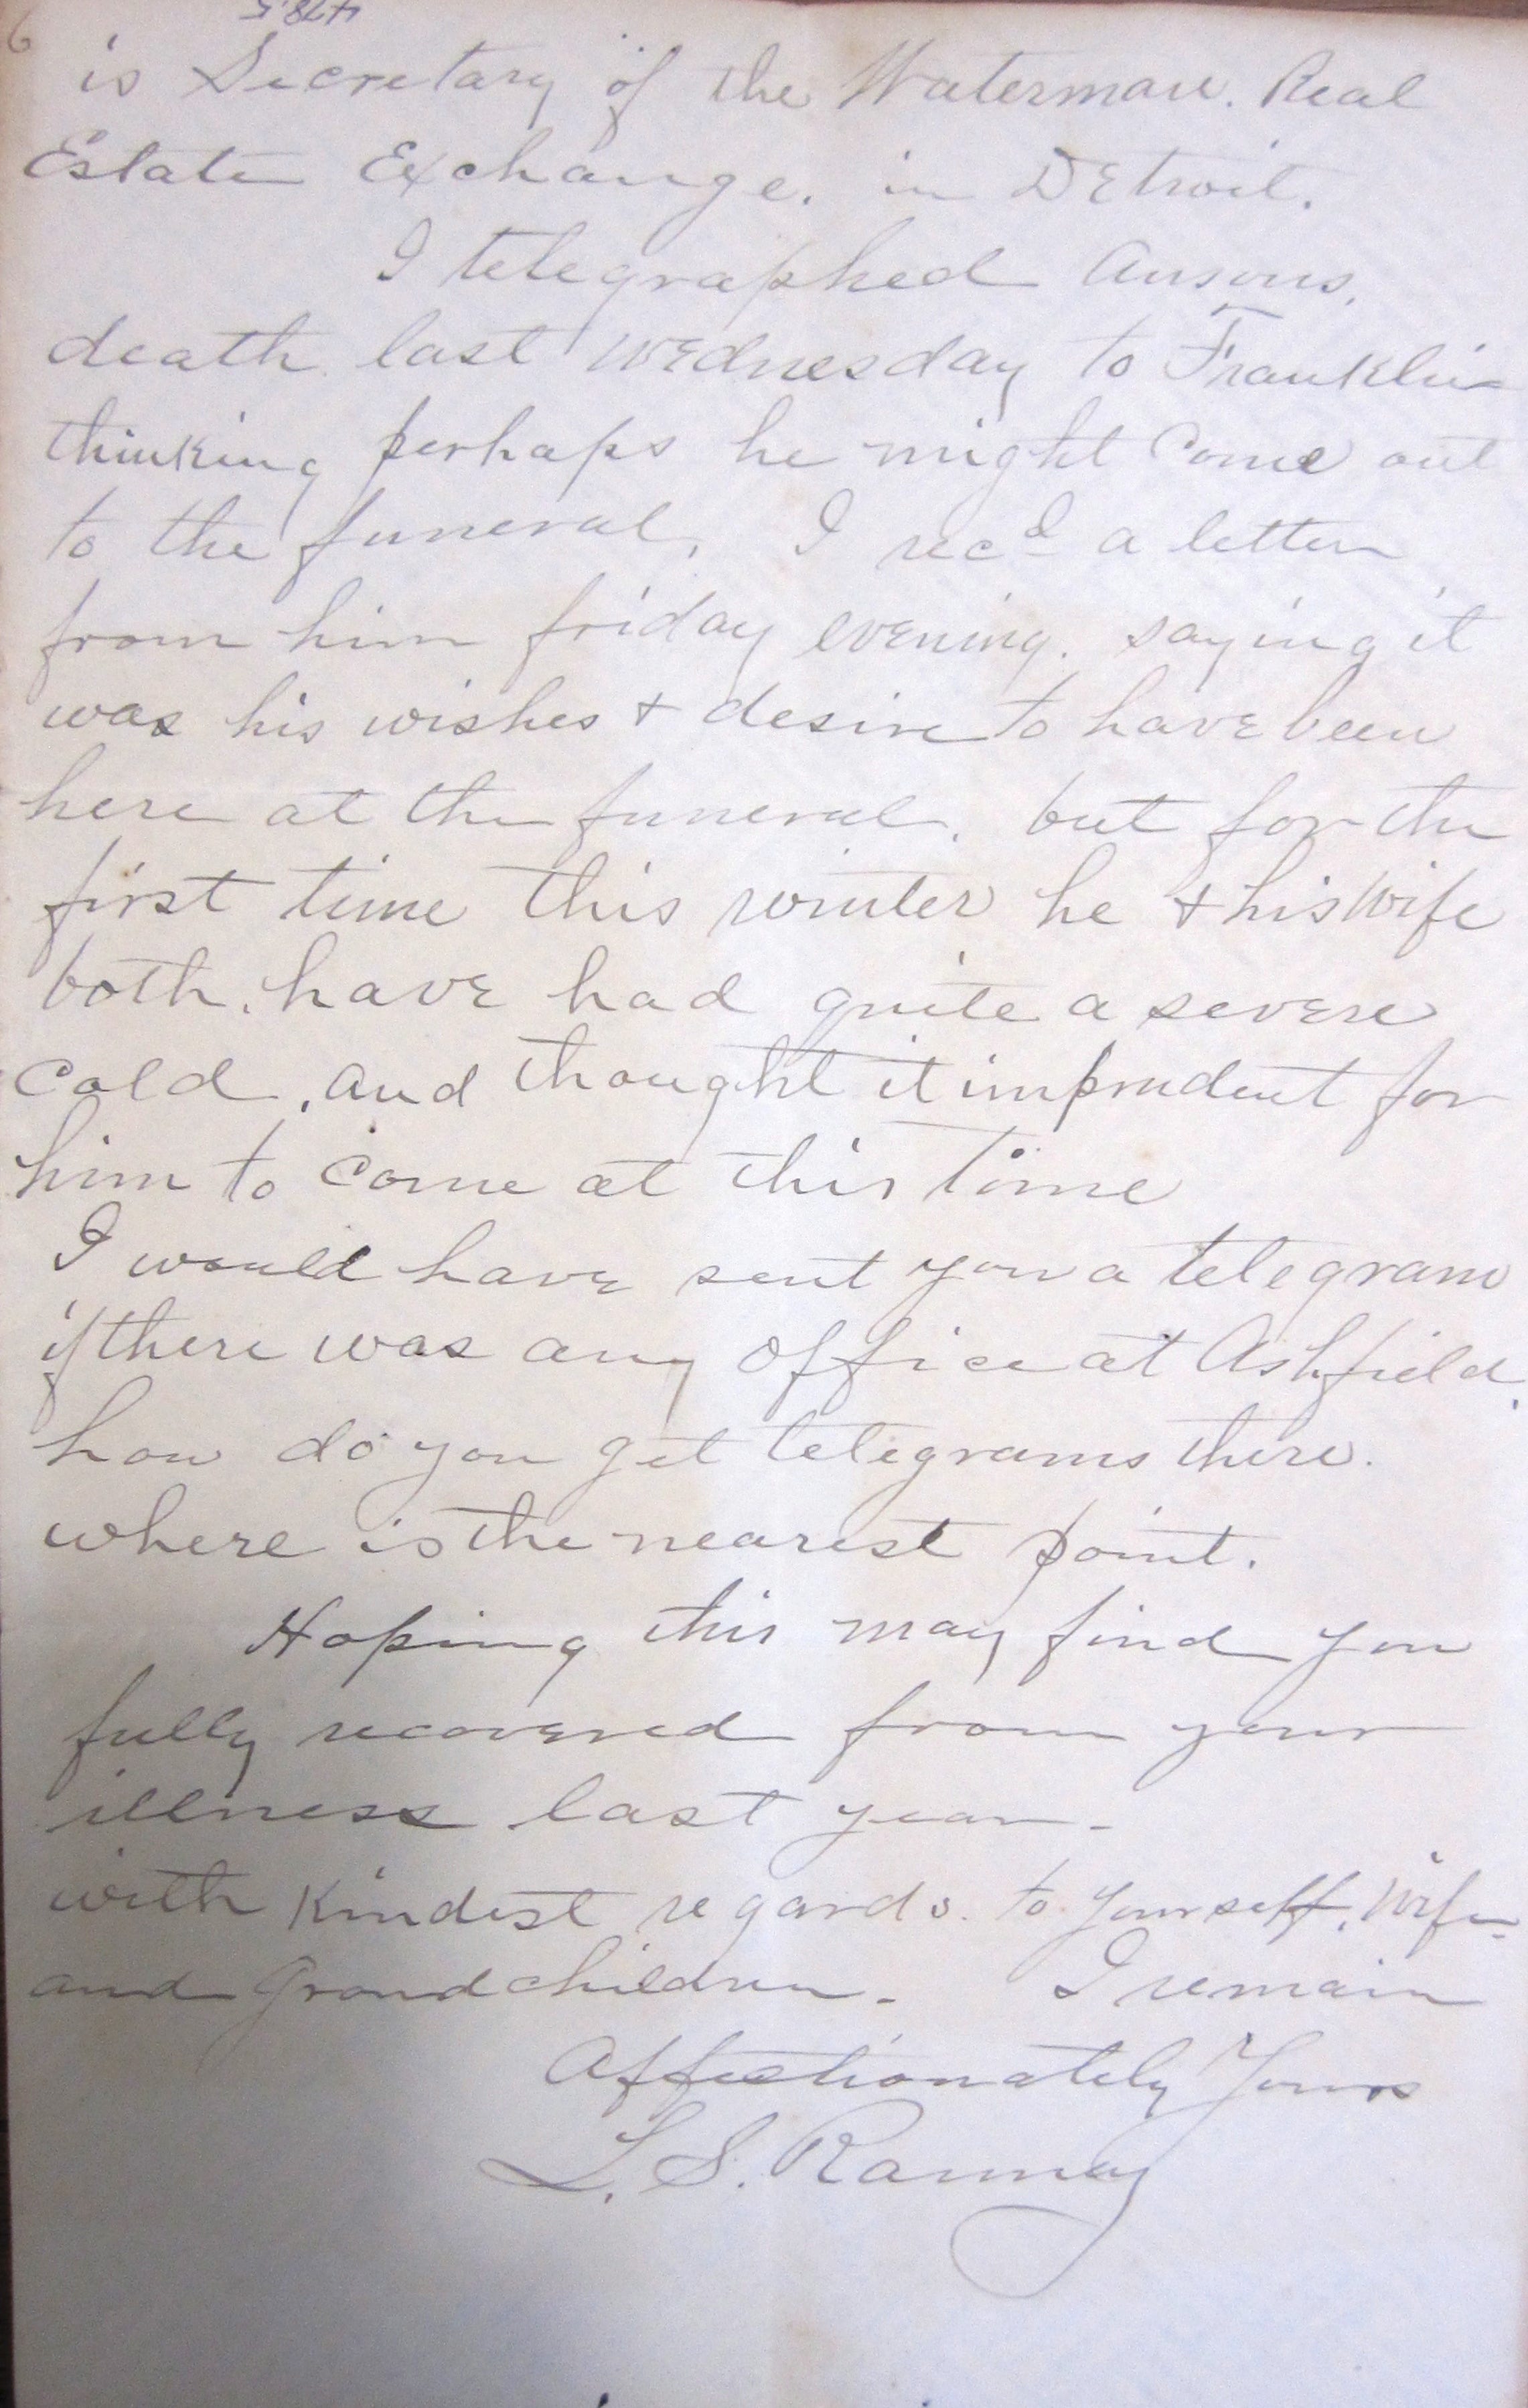 6
is Secretary of the Waterman. Real
Estate Exchange. in Detroit.
I telegraphed Ansons.
death last Wednesday to Franklin
thinking perhaps he might Come out
to the funeral. I recd a letter
from him friday evening. saying it
was his wishes + desire to have been
here at the funeral. but for the
first time this winter he + his Wife
both, have had quite a severe
Cold. and thought it imprudent for
him to Come at this time
I would have sent you a telegram
if there was any office at Ashfield.
how do you get telegrams there.
where is the nearest point.
Hoping this may find you
fully recovered from your
illness last year-
with Kindest regards. to yourself, Wife
and Grandchildren. I remain
Affectionately Yours
L. S. Ranney